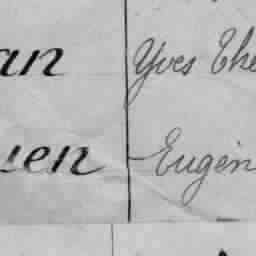 an Yves The
uen Eugèn